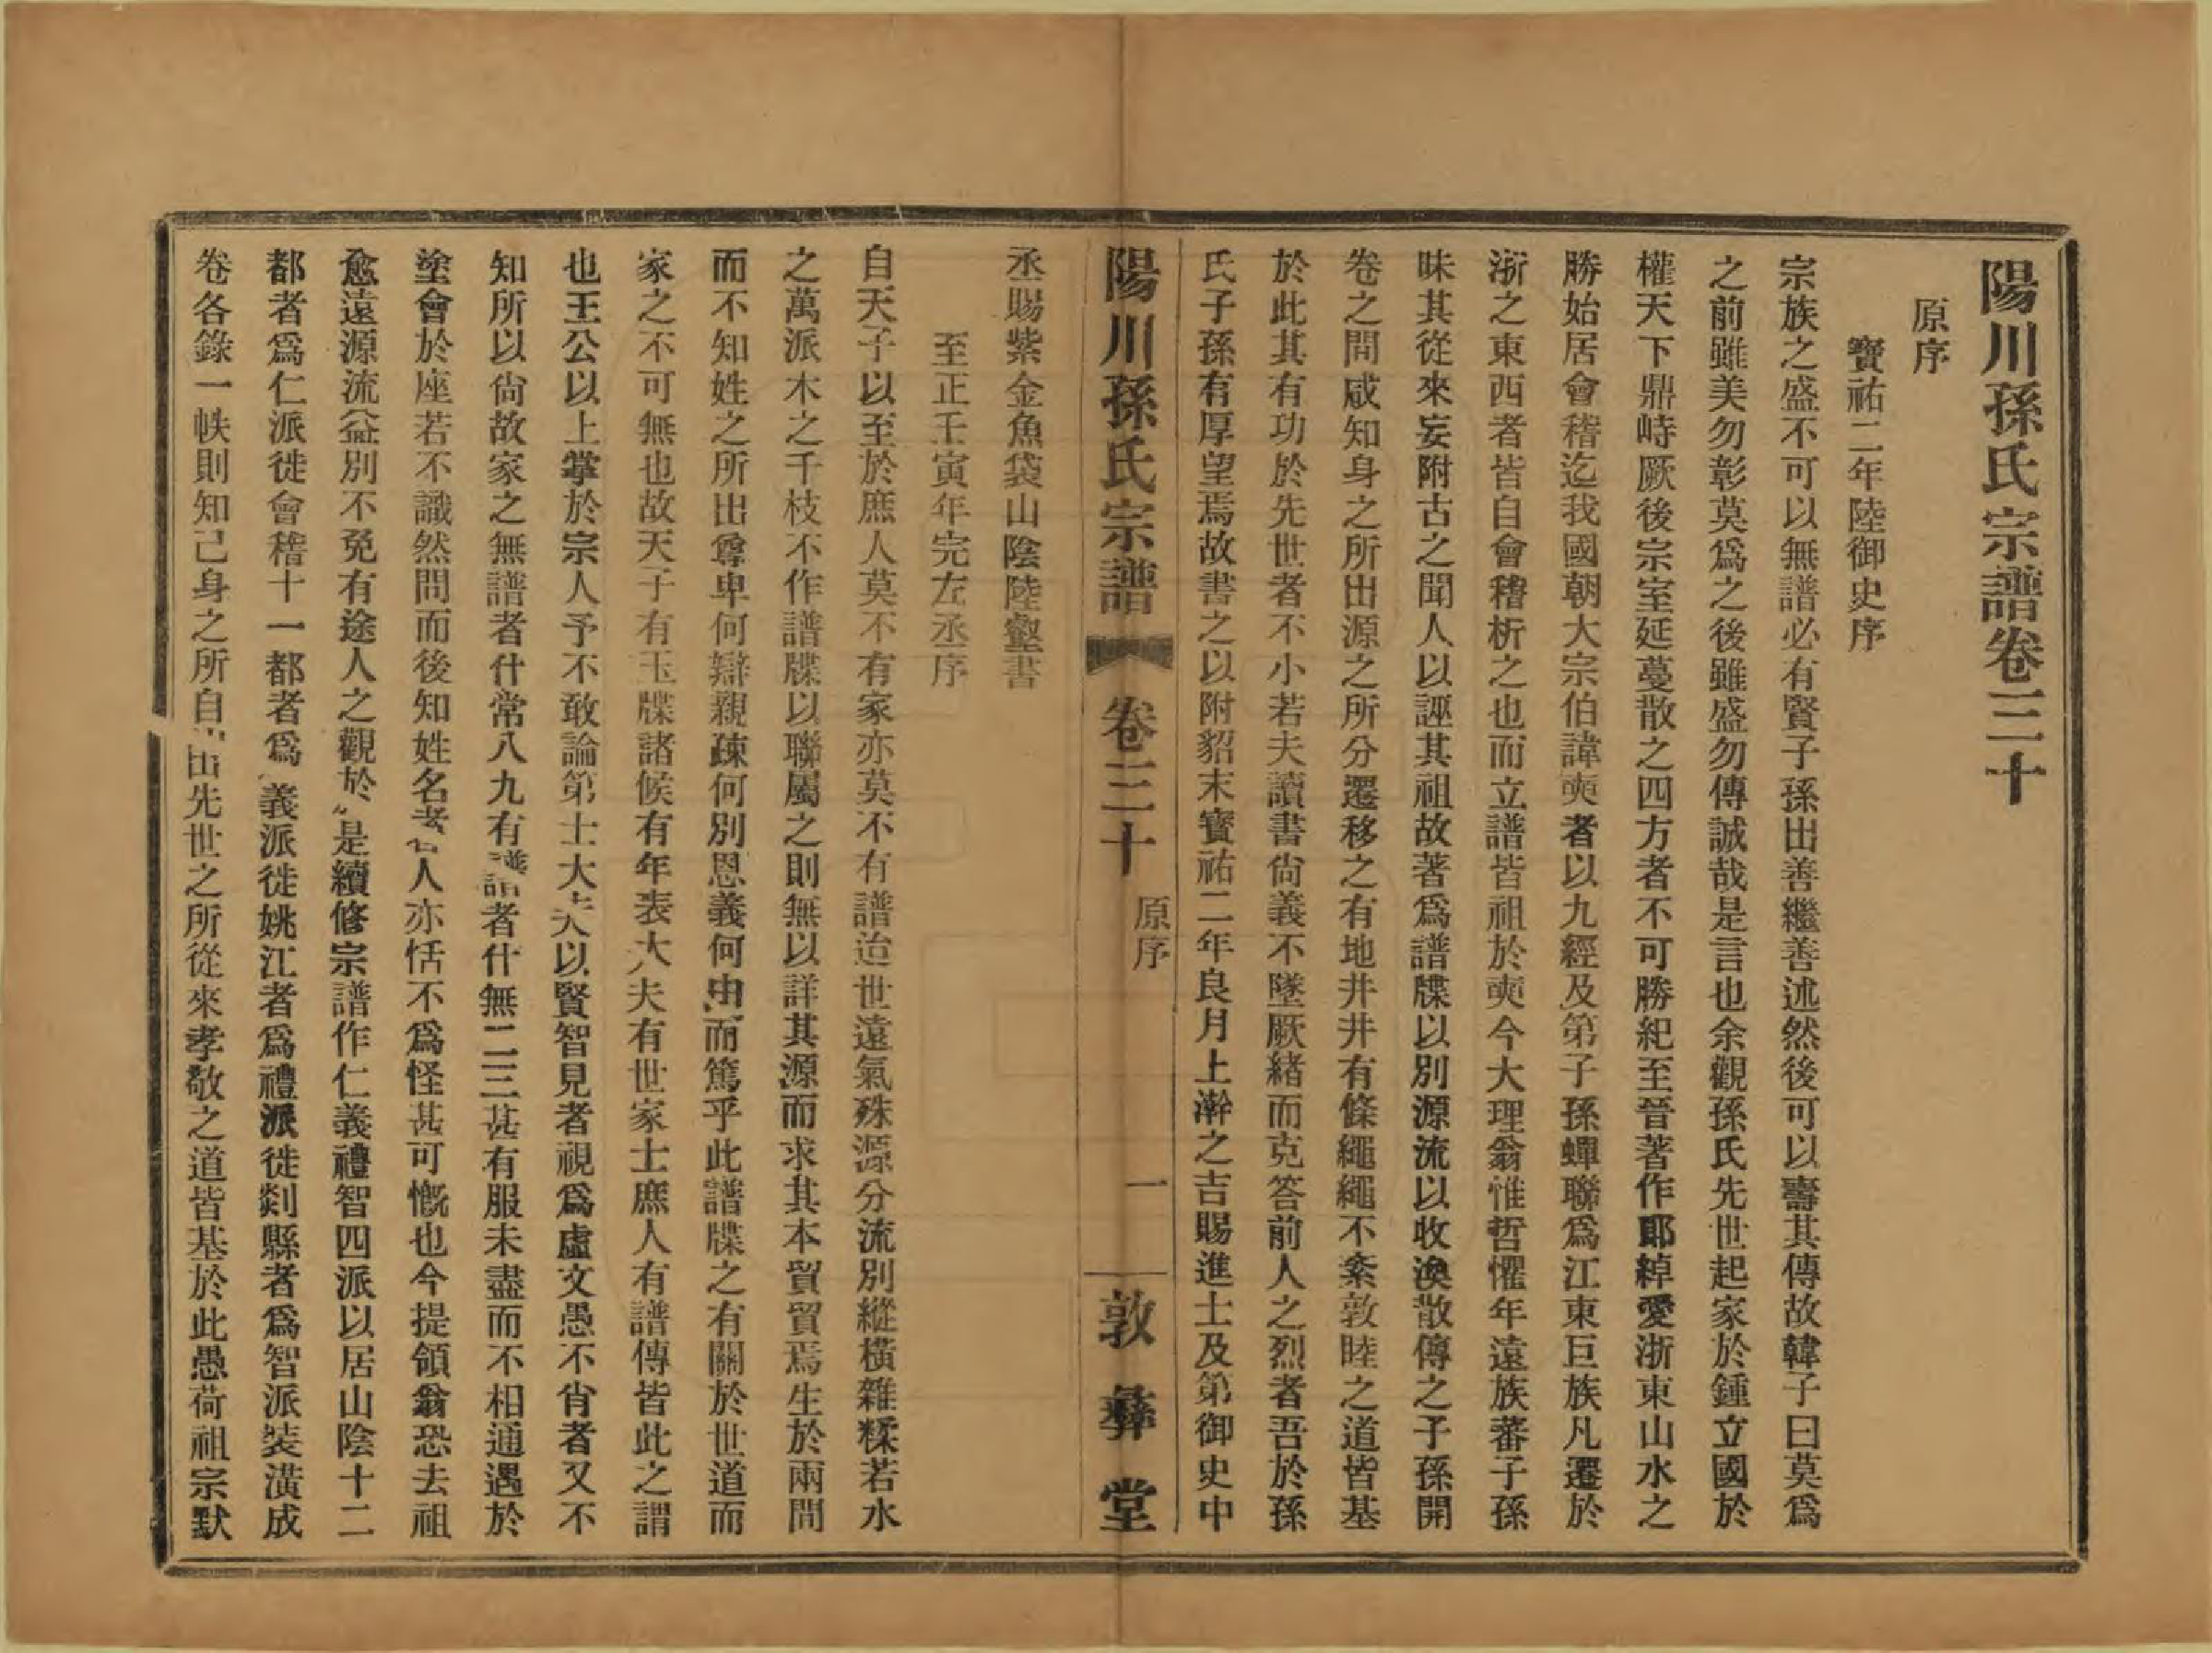 陽川孫氏宗譜卷三十
原序
寶祐二年陸御史序
宗族之盛不可以無譜必有賢子孫出善繼善述然後可以壽其傳故韓子曰莫爲
之前雖美勿彰莫爲之後雖盛勿傳誠哉是言也余觀孫氏先世起家於鍾立國於
權天下鼎峙厥後宗室延蔓散之四方者不可勝紀至晉著作郎綽愛浙東山水之
勝始居會稽迄我國朝大宗伯諱奭者以九經及第子孫蟬聯爲江東巨族凡遷於
浙之東西者皆自會稽析之也而立譜皆祖於奭今大理翁惟哲懼年遠族蕃子孫
昧其從來妄附古之聞人以誣其祖故著爲譜牒以別源流以收渙散傳之子孫開
卷之間咸知身之所出源之所分遷移之有地井井有條繩繩不紊敦睦之道皆基
於此其有功於先世者不小若夫讀書尙義不墜厥緒而克答前人之烈者吾於孫
氏子孫有厚望焉故書之以附貂末寶祐二年良月上澣之吉賜進士及第御史中
陽川孫氏宗譜 卷三十 原序 一 敦彝堂
丞賜紫金魚袋山陰陸壑書
至正壬寅年完左丞序
自天子以至於庶人莫不有家亦莫不有譜迨世遠氣殊源分流別縱橫雜糅若水
之萬派木之千枝不作譜牒以聯屬之則無以詳其源而求其本貿貿焉生於兩間
而不知姓之所出尊卑何辯親疎何別恩義何由而篤乎此譜牒之有關於世道而
家之不可無也故天子有玉牒諸候有年表大夫有世家士庶人有譜傳皆此之謂
也王公以上掌於宗人予不敢論第士大夫以賢智見者視爲虛文愚不肖者又不
知所以尙故家之無譜者什常八九有譜者什無二三甚有服未盡而不相通遇於
塗會於座若不識然問而後知姓名者人亦恬不爲怪甚可慨也今提領翁恐去祖
愈遠源流益別不免有途人之觀於是續修宗譜作仁義禮智四派以居山陰十二
都者爲仁派徙會稽十一都者爲義派徙姚江者爲禮派徙剡縣者爲智派裝潢成
卷各錄一帙則知己身之所自出先世之所從來孝敬之道皆基於此愚荷祖宗默